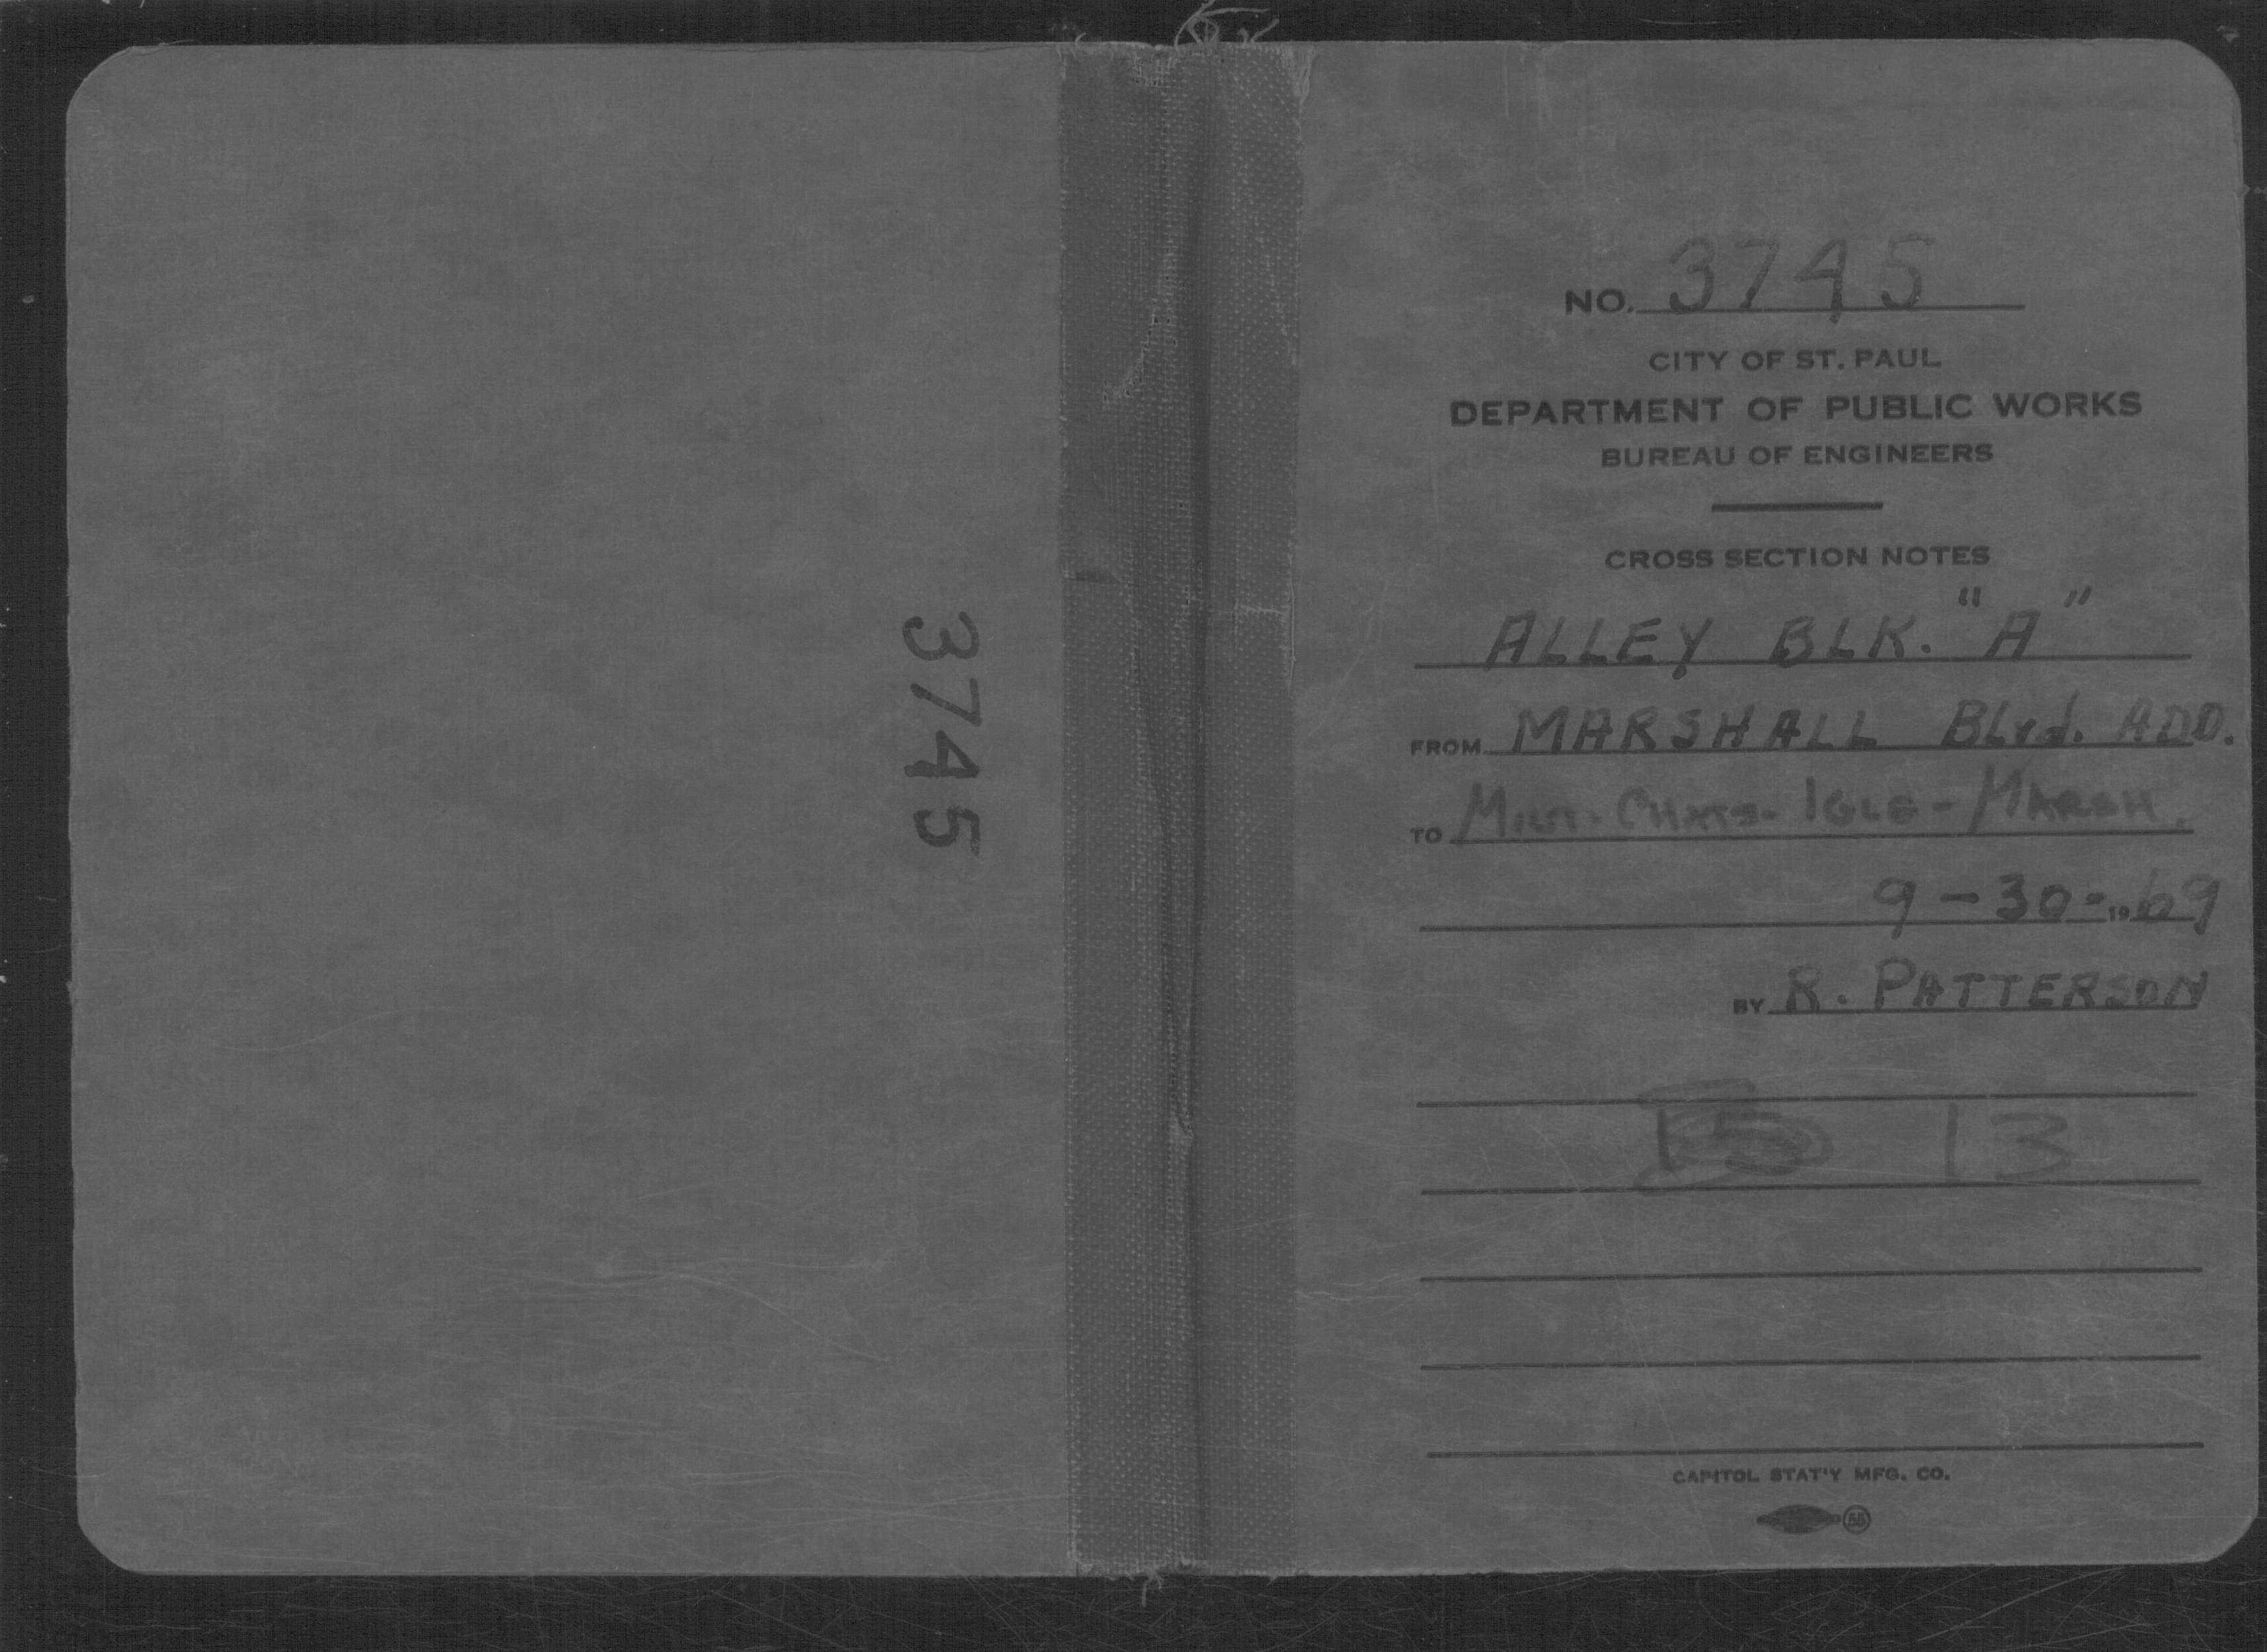 3745
NO. 3745
CITY OF ST. PAUL
DEPARTMENT OF PUBLIC WORKS
BUREAU OF ENGINEERS
CROSS SECTION NOTES
ALLEY BLK. "A"
FROM MARSHALL Blvd. ADD.
TO Milt. - Chats - Igle - Marsh.
9-30-1969
BY R. PATTERSON
13
CAPITOL STAT'Y MFG. CO.
55